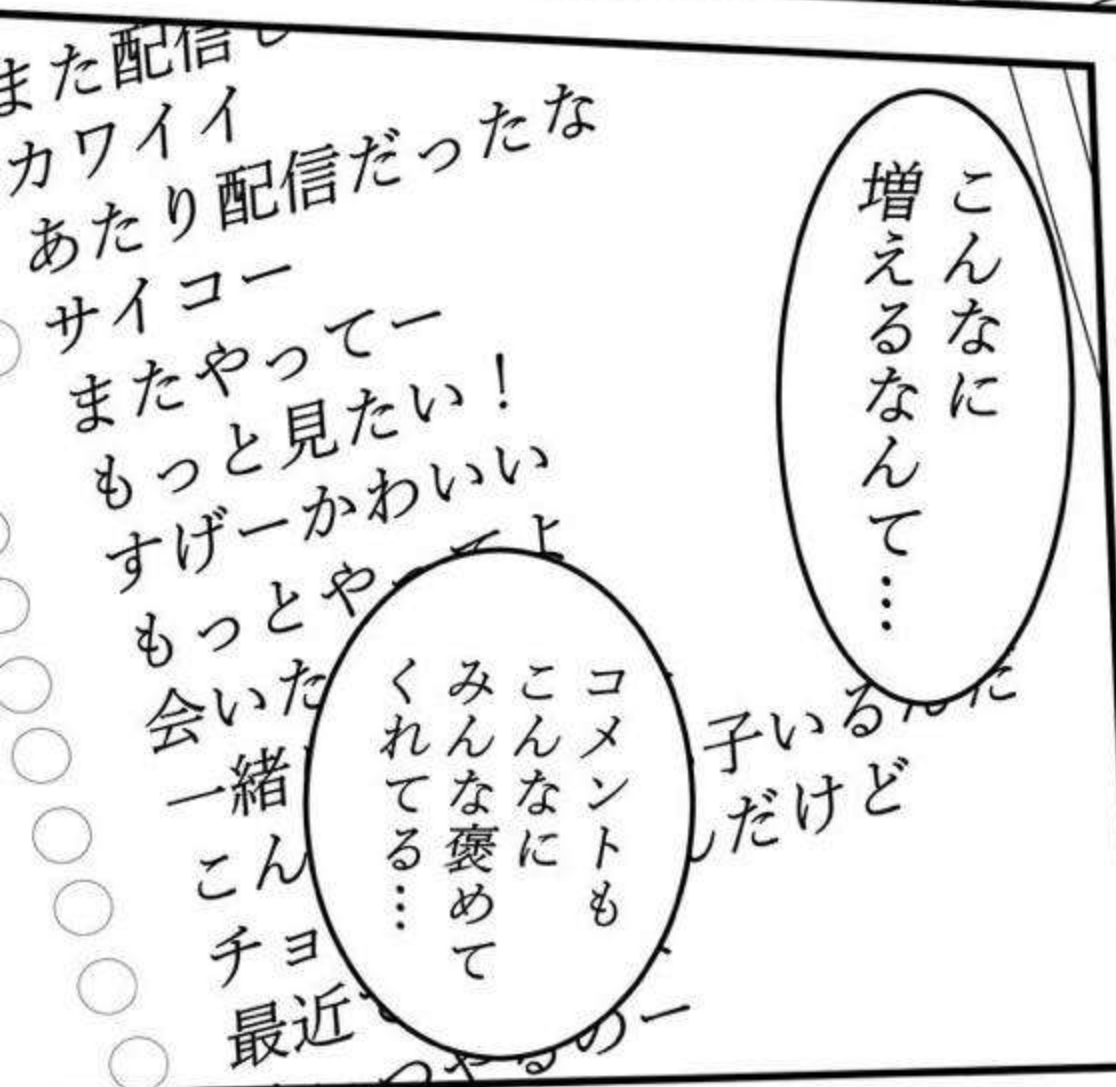 こんなに
増えるなんて…
コメントも
こんなに
みんな褒めて
くれてる…
また配信し
カワイイ
あたり配信だったな
サイコー
またやってー
もっと見たい！
すげーかわいい
もっとやってよ
会いた
一緒
子いるんだ
こん
だけど
チョ
最近